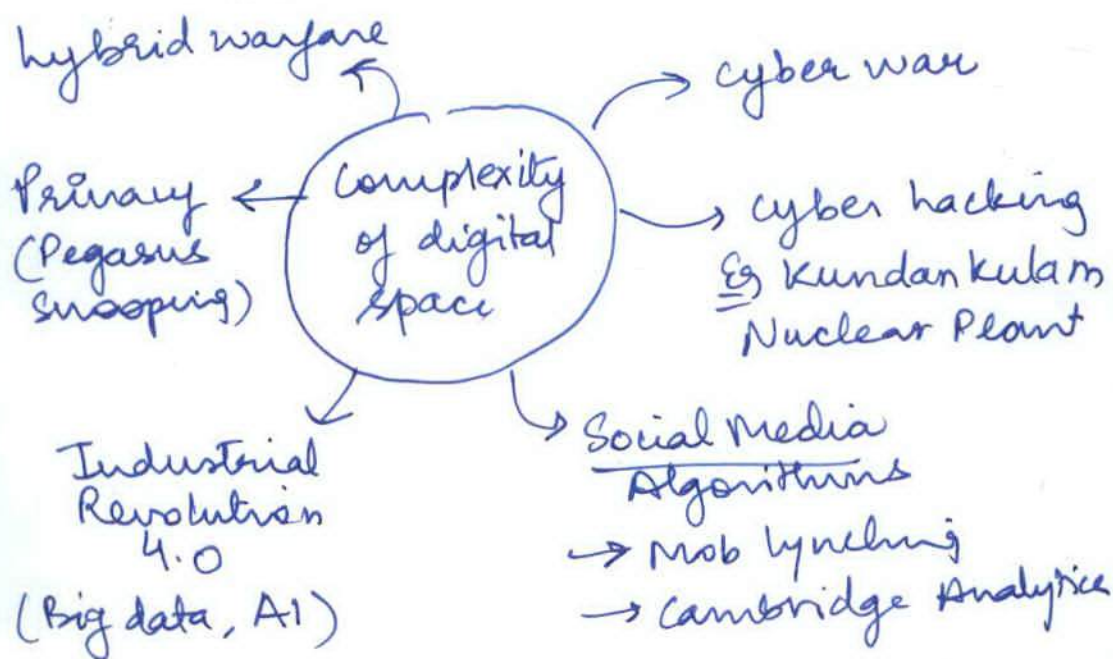 hybrid warfare
cyber war
Privacy
(Pegasus
snooping)
complexity
of digital
space
cyber hacking
Eg Kundankulam
Nuclear Plant
Industrial
Revolution
4.0
(Big data, AI)
Social Media
Algorithms
→ Mob lynching
→ Cambridge Analytica